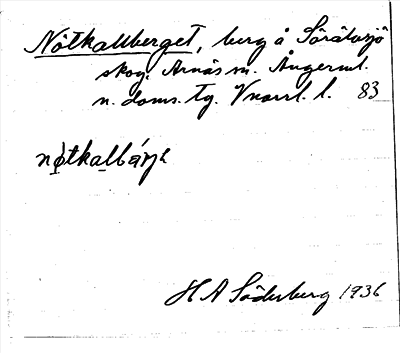 Nötkallberget, berg å Sörätansjö
skog, Arnäs sn. Ångerml.
n. doms. tg. Vnorrl. l. 83
nøtkallbárjə
H A Söderberg 1936